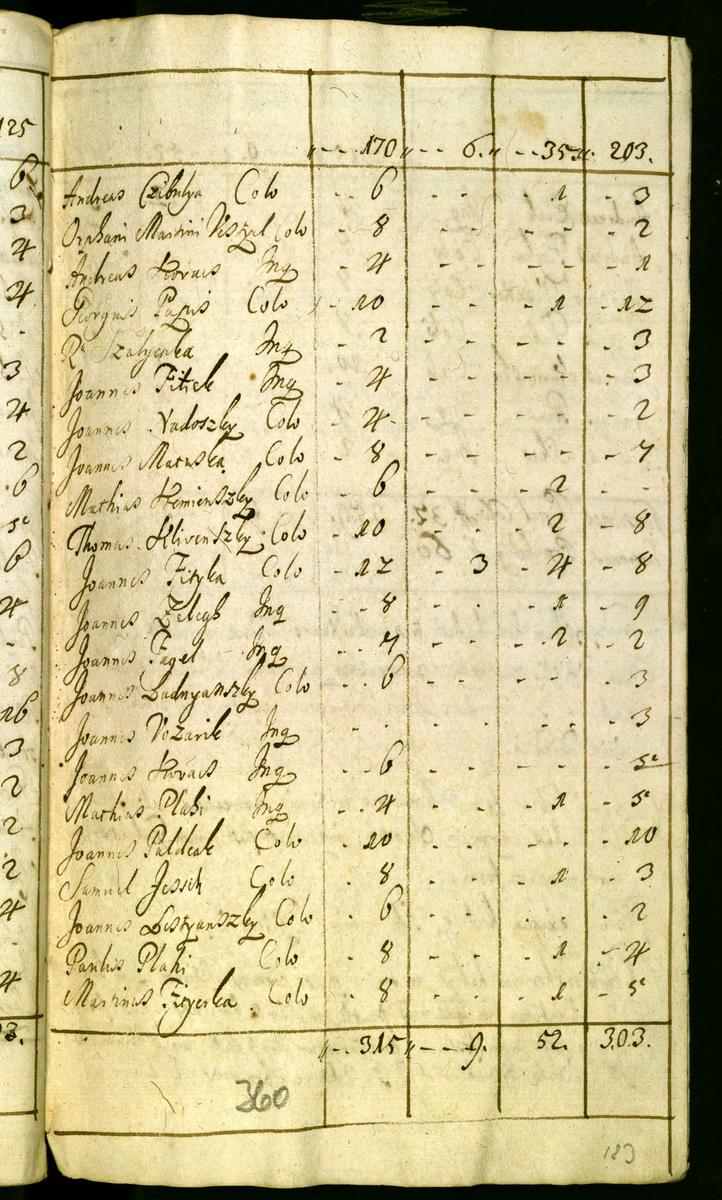 170 6. 35 203.
Andreas Czibulya Colo 6 - 1 3
Orphani Martini Veszel Colo 8 - - 2
Andreas Kovacs Inq 4 - - 1
Georgius Papis Colo 10 - 1 12
R Szalyenka Inq 2 - - 3
Joannes Fitzek Inq 4 - - 3
Joannes Nadoszky Colo 4 - - 2
Joannes Matuska Colo 8 - - 7
Mathias Kemienszky Colo 6 - 2 -
Thomas Klivenszky Colo 10 - 2 8
Joannes Fityka Colo 12 3 4 8
Joannes Zelegh Inq 8 - 1 9
Joannes Fagel Inq 4 - 2 2
Joannes Ladnyanszky Colo 6 - - 3
Joannes Vozarik Inq - - - 3
Joannes Kovacs Inq 6 - - 5
Mathias Plahi Inq 4 - 1 5
Joannes Paldeak Colo 10 - - 10
Samuel Jessich Colo 8 - 1 3
Joannes Lestyanszky Colo 6 - - 2
Paulus Plahi Colo 8 - 1 4
Martinus Fityerka Colo 8 - 1 5
315 9. 52. 303.
360
183
125
6
3
4
4
-
3
4
2
6
5
6
4
-
8
16
3
2
2
2
4
-
4
3.